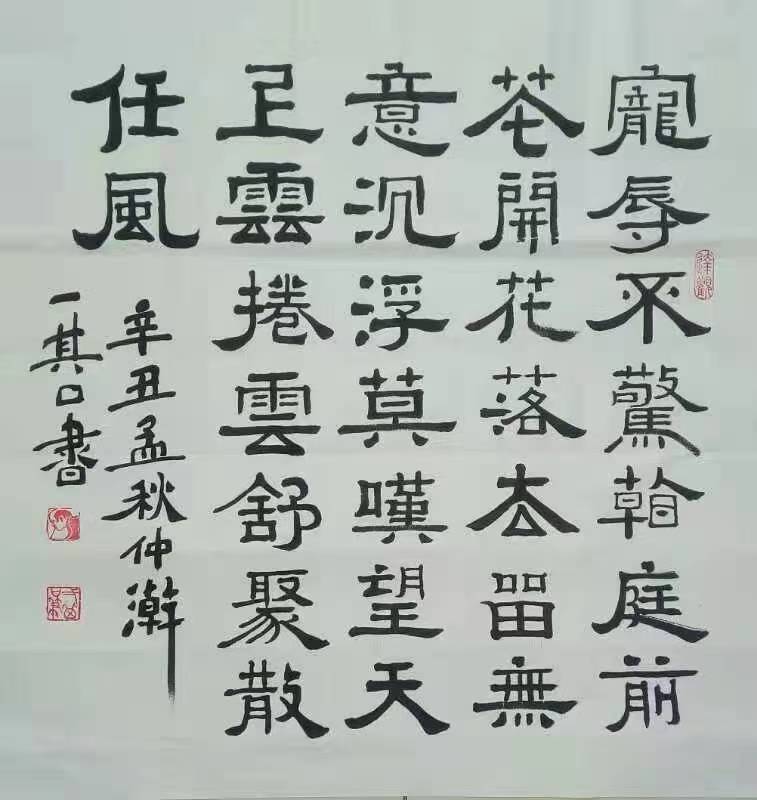 寵辱不驚看庭前
花開花落去留無
意沉浮莫嘆望天
上雲捲雲舒聚散
任風
辛丑孟秋仲澣
一其口書